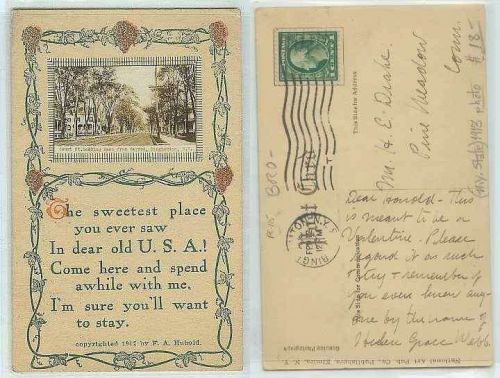 Court St. looking East from Carroll, Binghamton, N.Y.
The sweetest place
you ever saw
In dear old U. S. A.!
Come here and spend
awhile with me,
I'm sure you'll want
to stay.
copyrighted 1912 by F. A. Hubold.
M. H. E. Drake
Pine Meadow
Conn.
$18-
(N.Y. State) 1913 photo
BRO-
This Side for Address
Dear Harold - This
is meant to be a
Valentine. Please
regard it as such
+ try + remember if
you ever knew any-
one by the name of
Grace Webb.
National Art Pub. Co., Publishers, Elmira, N. Y.
Genuine Photograph